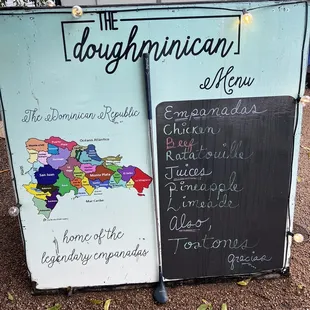 THE
doughminican
Menu
The Dominican Republic
Oceano Atlantico
San Juan
Monte Plata
Mar Caribe
home of the
legendary empanadas
Empanadas
Chicken
Beef
Ratatouille
Juices
Pineapple
Limeade
Also,
Tostones
gracias